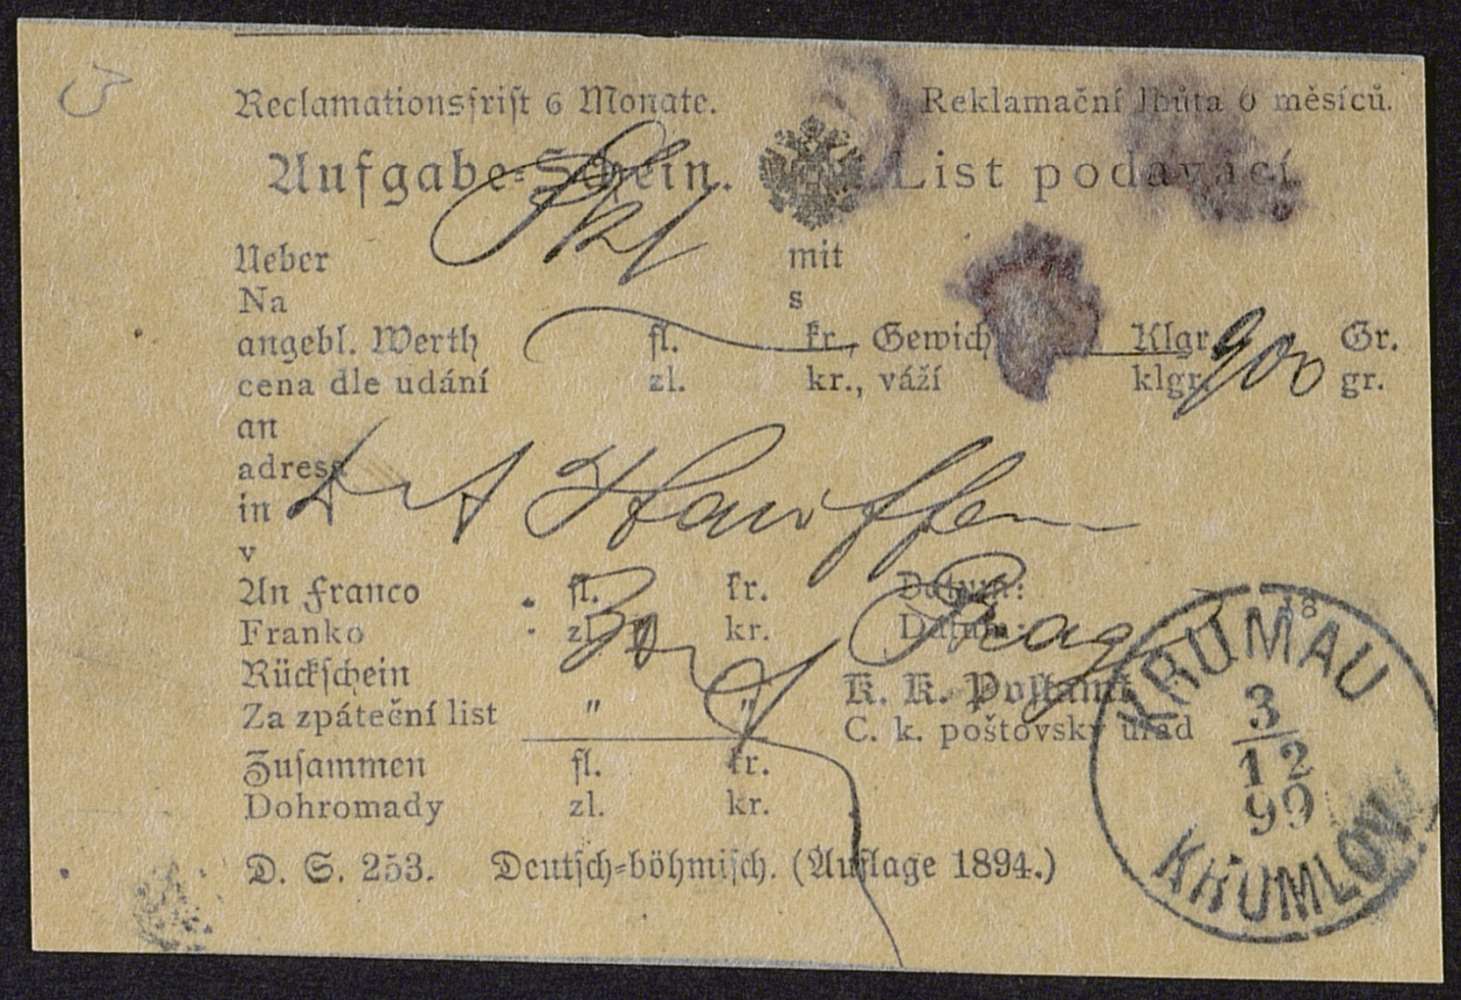 Reclamationsfrist 6 Monate. Reklamační lhůta 6 měsíců.
Aufgabe-Schein. List podavací.
Ueber mit
Na s
angebl. Werth fl. kr., Gewicht Klgr. 900 Gr.
cena dle udání zl. kr., váží klgr. gr.
an
adresa
Dr A Hauffen
in
v
An Franco fl. kr. Datum:
Franko zl. kr. Datum: 18
Prag
Rückschein K. K. Postamt
Za zpáteční list " " C. k. poštovský úřad
Zusammen fl. kr.
Dohromady zl. kr.
D. S. 253. Deutsch-böhmisch. (Auflage 1894.)
KRUMAU
3
12
99
KRUMLOV